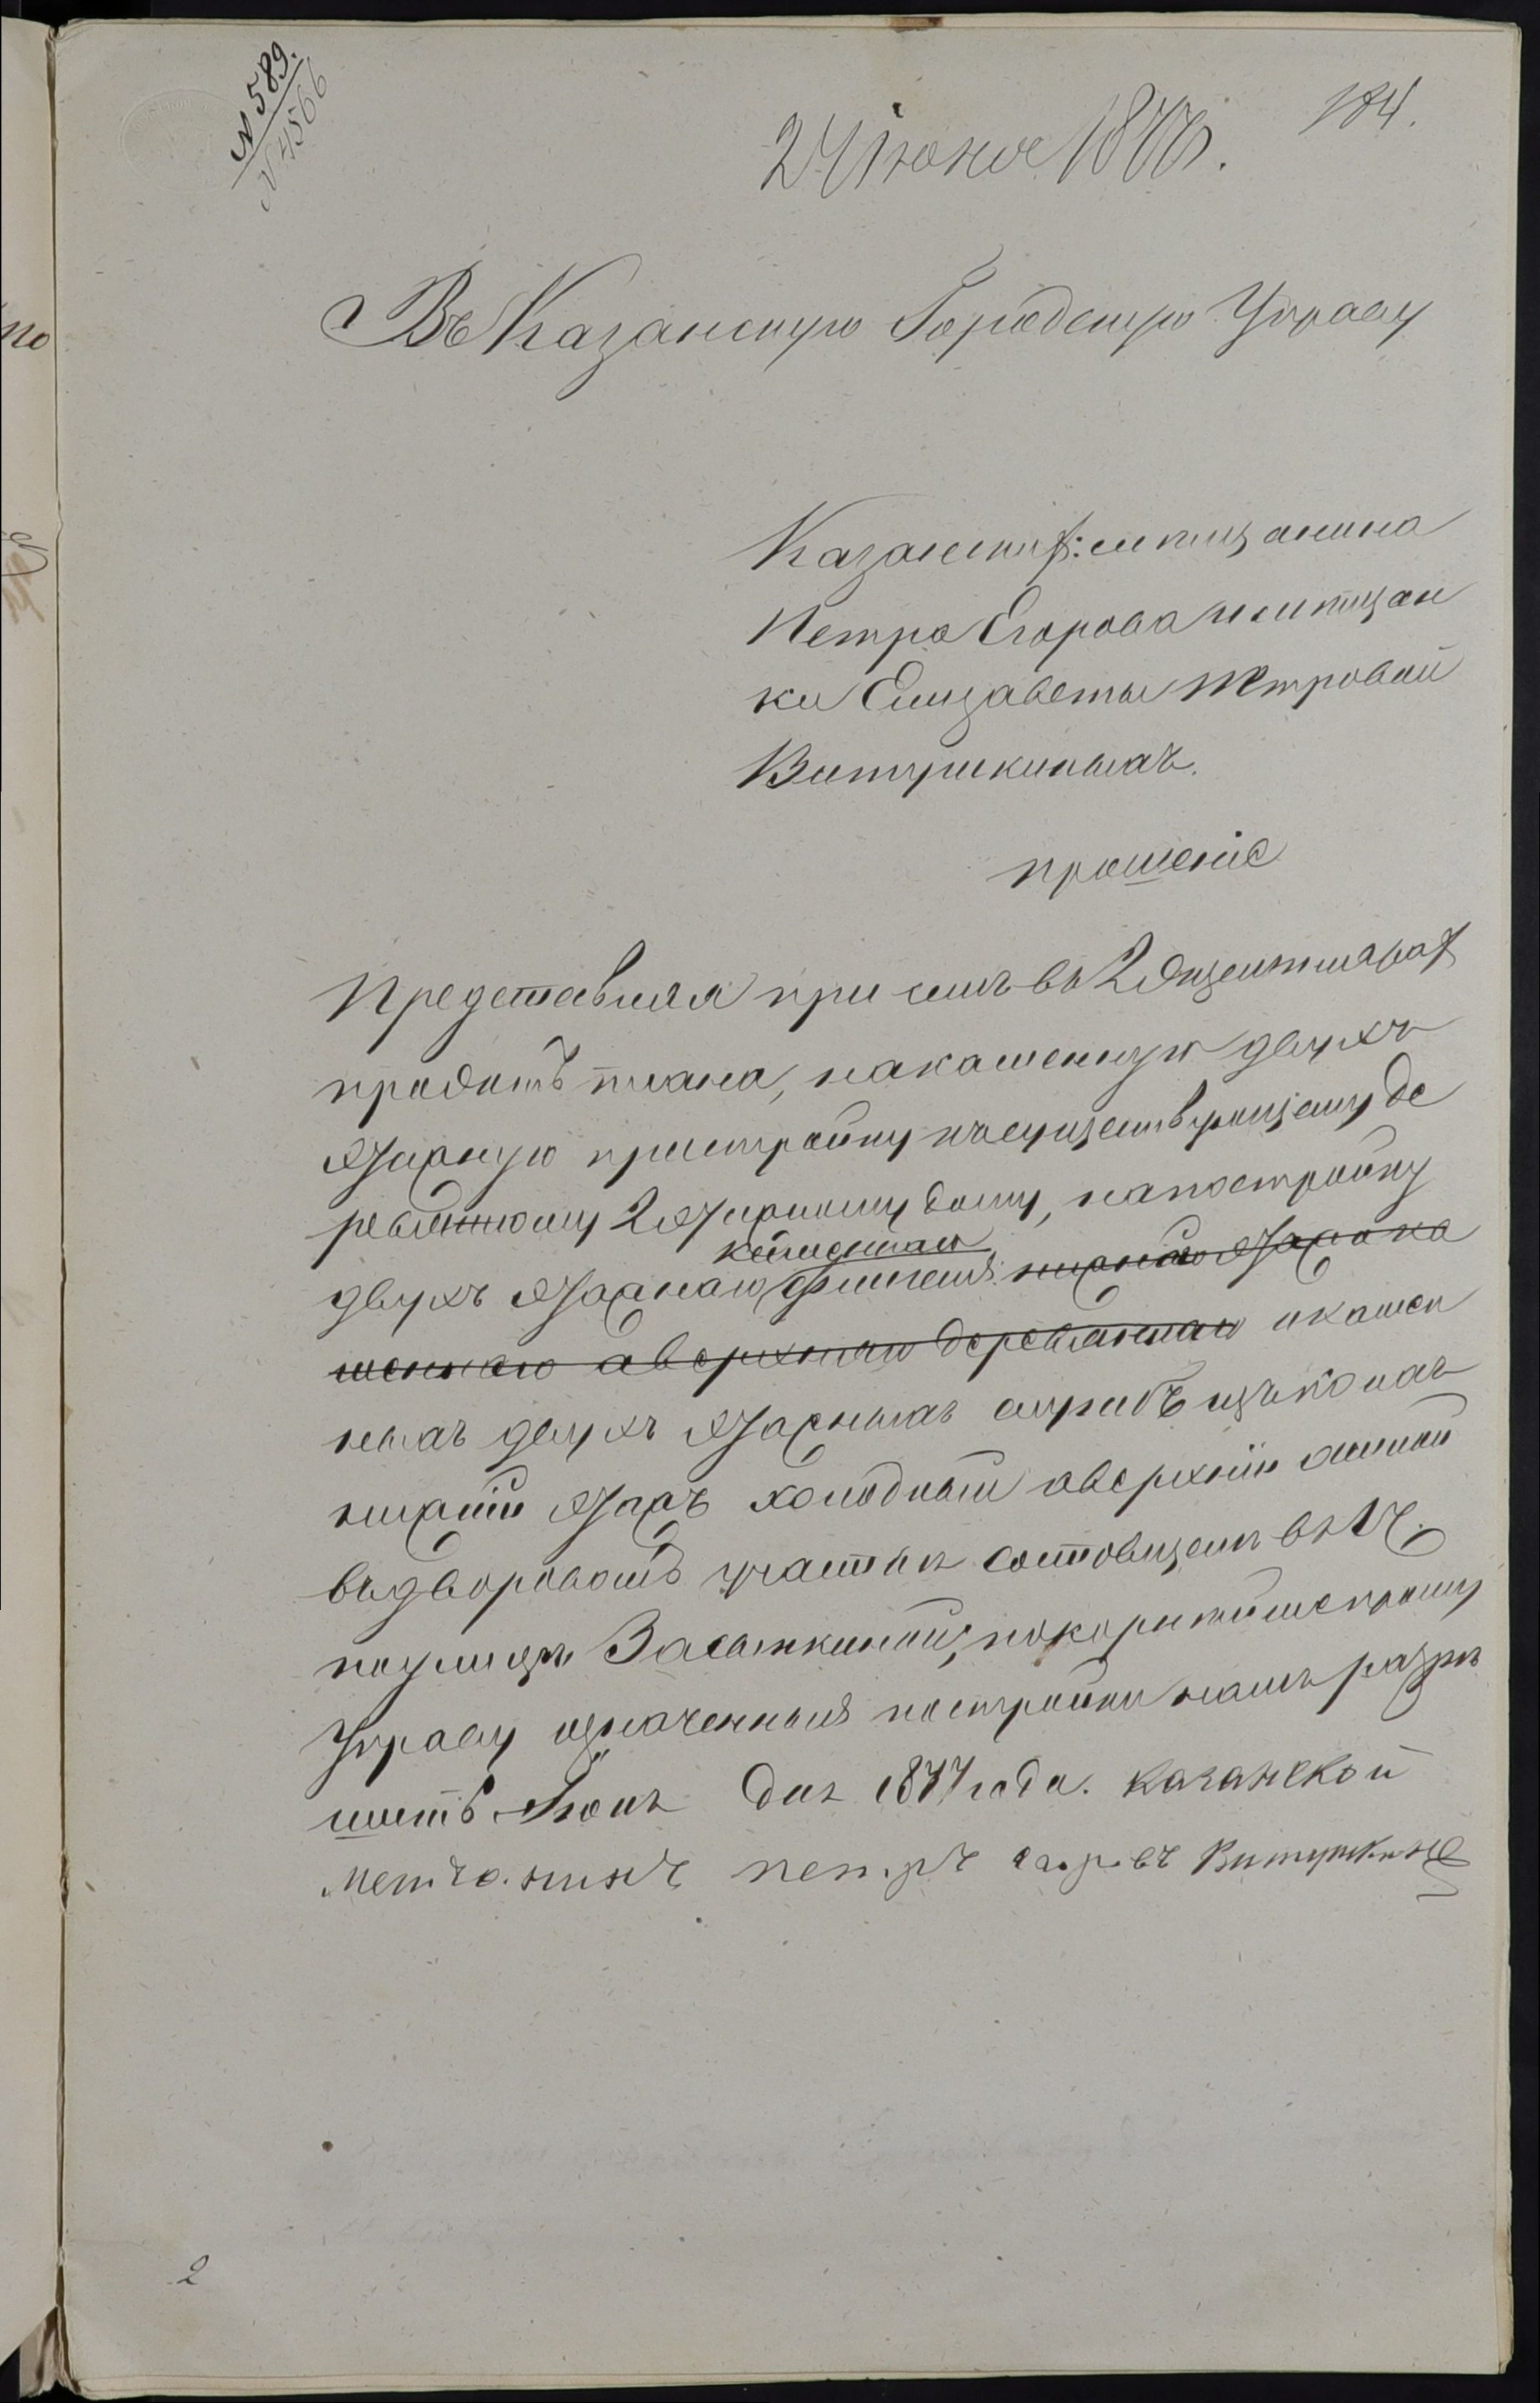 N 589.
N 4566
24 Июня 1877.
184.
Въ Казанскую Городскую Управу
Казанскихъ: мѣщанина
Петра Егорова и мѣщан
ки Елизаветы Петровой
Витушкиныхъ.
прошеніе
Представляя при семъ въ 2 экземплярах
проэктъ плана, на каменную двухъ
этажную пристройку къ существующему де
ревянному 2 этажному дому, на постройку
каменнаго
двухъ этажнаго флигеля нижній этажъ ка
меннаго а верхняго деревяннаго и камен
ныхъ двухъ этажныхъ службъ изъ коихъ
нижній этажъ холодный а верхній
въ дворовомъ участкѣ состоящемъ въ 1 ч.
по улицѣ Засыпкиной, покорнѣйше прошу
Управу означенныя постройки намъ разрѣ
шить Іюня дня 1877 года. Казанской
мещанинъ петръ егоровъ Витушкинъ
2